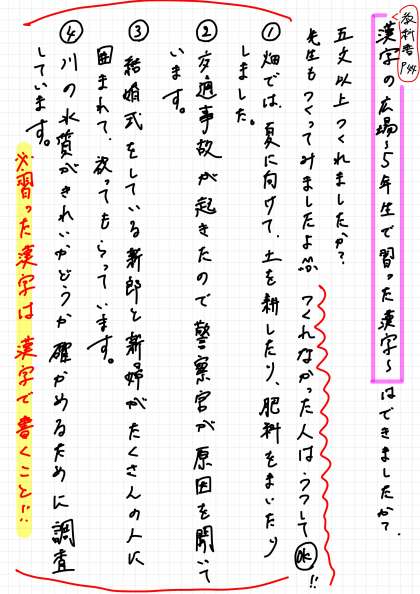 教科書P44
漢字の広場～5年生で習った漢字～はできましたか？
五文以上つくれましたか？
先生もつくってみましたよ^^つくれなかった人はうつしてOK!!
①畑では、夏に向けて、土を耕したり、肥料をまいたり
しました。
②交通事故が起きたので警察官が原因を聞いて
います。
③結婚式をしている新郎と新婦がたくさんの人に
囲まれて、祝ってもらっています。
④川の水質がきれいかどうか確かめるために調査
しています。
※習った漢字は漢字で書くこと!!